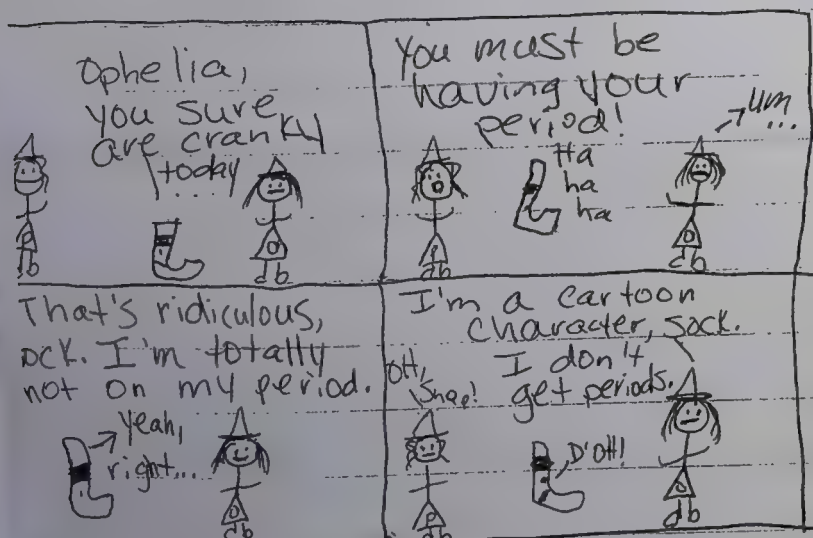 Ophelia,
you sure
are cranky
today
P
O
You must be
having your
period!
Ha
ha
ha
um
...
P
O
That's ridiculous,
ock. I'm totally
not on my period.
Yeah,
right...
O
I'm a cartoon
character, sock.
I don't
get periods.
OH,
Snap!
D'OH!
P
O